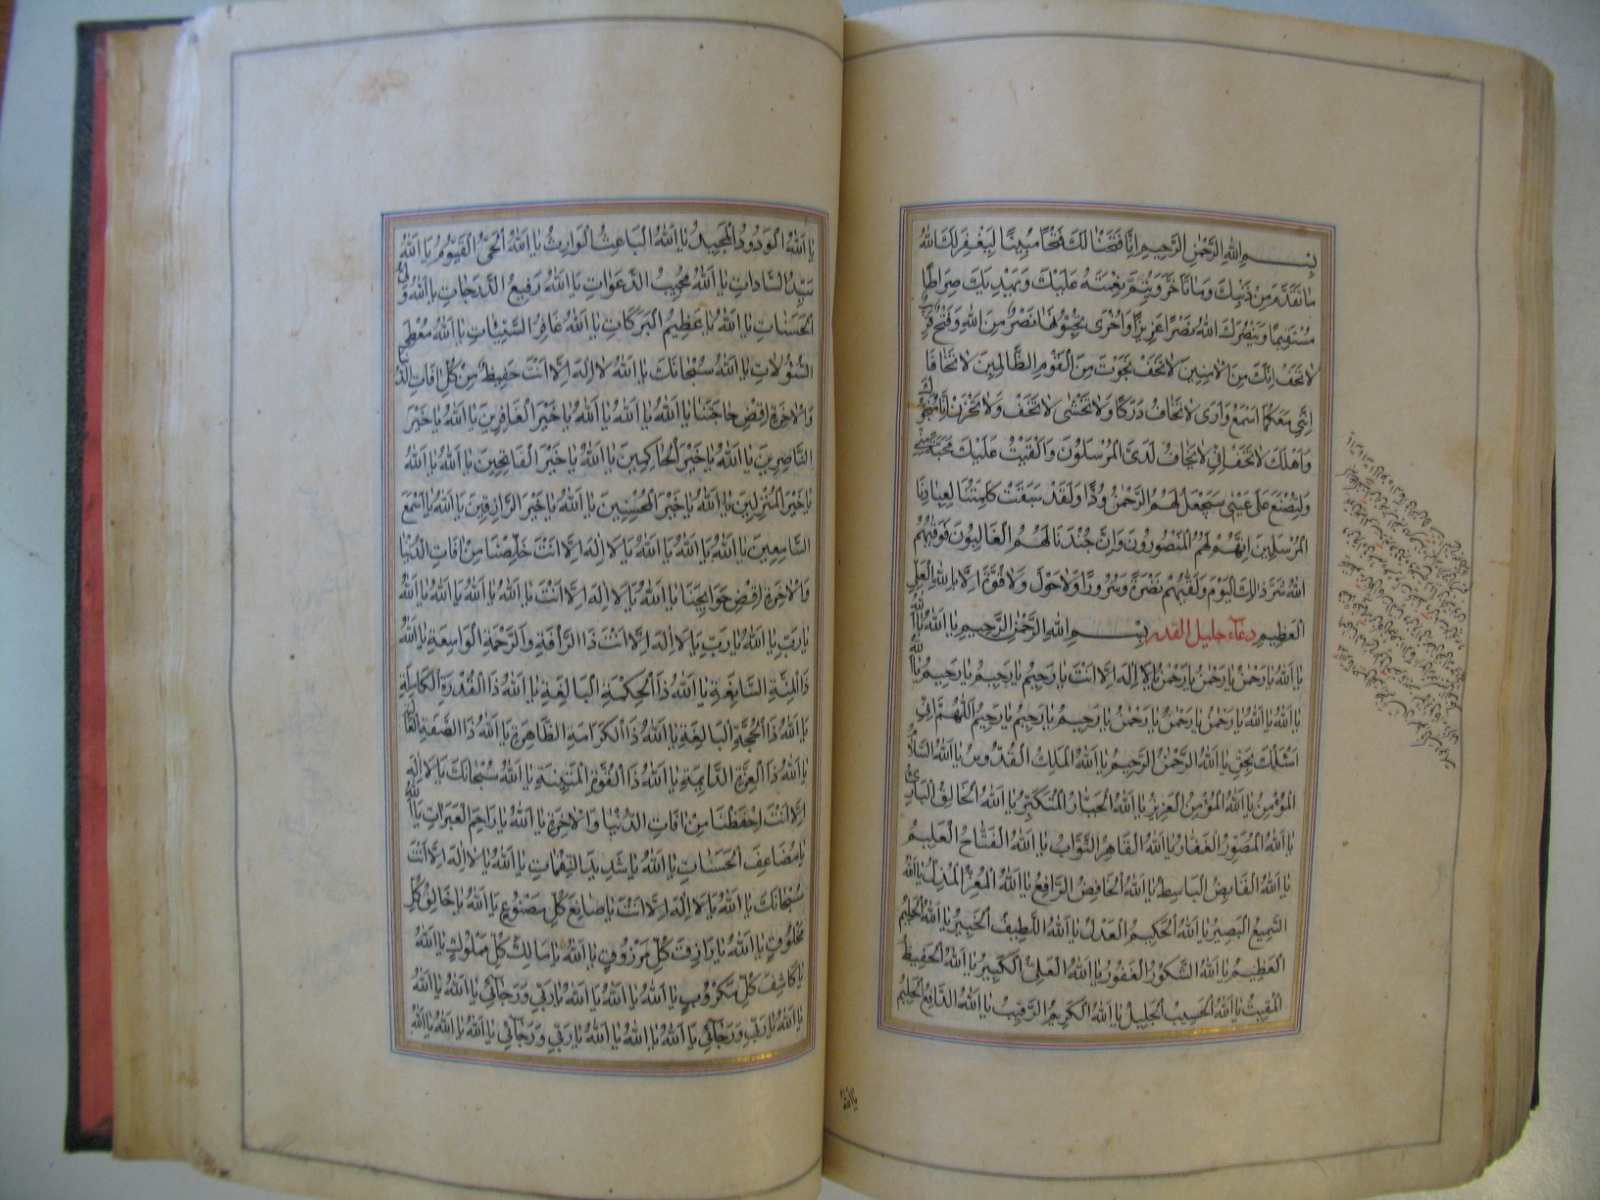 بِسْمِ اللهِ الرَّحْمٰنِ الرَّحِيمِ اِنَّا فَتَحْنَا لَكَ فَتْحًا مُبِينًا لِيَغْفِرَ لَكَ اللهُ
مَا تَقَدَّمَ مِنْ ذَنْبِكَ وَمَا تَاَخَّرَ وَيُتِمَّ نِعْمَتَهُ عَلَيْكَ وَيَهْدِيَكَ صِرَاطًا
مُسْتَقِيمًا وَيَنْصُرَكَ اللهُ نَصْرًا عَزِيزًا وَاُخْرٰى تُحِبُّونَهَا نَصْرٌ مِنَ اللهِ وَفَتْحٌ قَرِيبٌ
لَا تَخَفْ اِنَّكَ مِنَ الْاٰمِنِينَ لَا تَخَفْ نَجَوْتَ مِنَ الْقَوْمِ الظَّالِمِينَ لَا تَخَافَا
اِنَّنِي مَعَكُمَا اَسْمَعُ وَاَرٰى لَا تَخَافُ دَرَكًا وَلَا تَخْشٰى لَا تَخَفْ وَلَا تَحْزَنْ اِنَّا مُنَجُّوكَ
وَاَهْلَكَ لَا تَخَفْ اِنِّي لَا يَخَافُ لَدَيَّ الْمُرْسَلُونَ وَاَلْقَيْتُ عَلَيْكَ مَحَبَّةً مِنِّي
وَلِتُصْنَعَ عَلٰى عَيْنِي سَيَجْعَلُ لَهُمُ الرَّحْمٰنُ وُدًّا وَلَقَدْ سَبَقَتْ كَلِمَتُنَا لِعِبَادِنَا
الْمُرْسَلِينَ اِنَّهُمْ لَهُمُ الْمَنْصُورُونَ وَاِنَّ جُنْدَنَا لَهُمُ الْغَالِبُونَ فَوَقٰيهُمُ
اللهُ شَرَّ ذٰلِكَ الْيَوْمِ وَلَقّٰيهُمْ نَضْرَةً وَسُرُورًا وَلَا حَوْلَ وَلَا قُوَّةَ اِلَّا بِاللهِ الْعَلِيِّ
الْعَظِيمِ دعاء جليل القدر بِسْمِ اللهِ الرَّحْمٰنِ الرَّحِيمِ يَا اَللهُ يَا اَللهُ
يَا اَللهُ يَا رَحْمٰنُ يَا رَحْمٰنُ يَا رَحْمٰنُ يَا لَا اِلٰهَ اِلَّا اَنْتَ يَا رَحِيمُ يَا رَحِيمُ يَا رَحِيمُ يَا اَللهُ
يَا اَللهُ يَا اَللهُ يَا رَحْمٰنُ يَا رَحْمٰنُ يَا رَحْمٰنُ يَا رَحِيمُ يَا رَحِيمُ يَا رَحِيمُ اَللّٰهُمَّ اِنِّي
اَسْئَلُكَ بِحَقِّ يَا اَللهُ الرَّحْمٰنُ الرَّحِيمُ يَا اَللهُ الْمَلِكُ الْقُدُّوسُ يَا اَللهُ السَّلَامُ
الْمُؤْمِنُ يَا اَللهُ الْمُؤْمِنُ الْعَزِيزُ يَا اَللهُ الْجَبَّارُ الْمُتَكَبِّرُ يَا اَللهُ الْخَالِقُ الْبَارِئُ
يَا اَللهُ الْمُصَوِّرُ الْغَفَّارُ يَا اَللهُ الْقَاهِرُ التَّوَّابُ يَا اَللهُ الْفَتَّاحُ الْعَلِيمُ
يَا اَللهُ الْقَابِضُ الْبَاسِطُ يَا اَللهُ الْخَافِضُ الرَّافِعُ يَا اَللهُ الْمُعِزُّ الْمُذِلُّ يَا اَللهُ
السَّمِيعُ الْبَصِيرُ يَا اَللهُ الْحَكِيمُ الْعَدْلُ يَا اَللهُ اللَّطِيفُ الْخَبِيرُ يَا اَللهُ الْحَلِيمُ
الْعَظِيمُ يَا اَللهُ الشَّكُورُ الْغَفُورُ يَا اَللهُ الْعَلِيُّ الْكَبِيرُ يَا اَللهُ الْحَفِيظُ
الْمُقِيتُ يَا اَللهُ الْحَسِيبُ الْجَلِيلُ يَا اَللهُ الْكَرِيمُ الرَّقِيبُ يَا اَللهُ
يَا اَللهُ
يَا اَللهُ الْوَدُودُ الْمَجِيدُ يَا اَللهُ الْبَاعِثُ الْوَارِثُ يَا اَللهُ الْحَيُّ الْقَيُّومُ يَا اَللهُ
سَيِّدُ السَّادَاتِ يَا اَللهُ مُجِيبُ الدَّعَوَاتِ يَا اَللهُ رَفِيعُ الدَّرَجَاتِ يَا اَللهُ وَلِيُّ
الْحَسَنَاتِ يَا اَللهُ يَا عَظِيمَ الْبَرَكَاتِ يَا اَللهُ غَافِرَ السَّيِّئَاتِ يَا اَللهُ مُعْطِيَ
السُّؤُلَاتِ يَا اَللهُ سُبْحَانَكَ يَا اَللهُ لَا اِلٰهَ اِلَّا اَنْتَ حَفِيظٌ مِنْ كُلِّ اٰفَاتِ الدُّنْيَا
وَالْاٰخِرَةِ اِقْضِ حَاجَتَنَا يَا اَللهُ يَا اَللهُ يَا اَللهُ يَا خَيْرَ الْغَافِرِينَ يَا اَللهُ يَا خَيْرَ
النَّاصِرِينَ يَا اَللهُ يَا خَيْرَ الْحَاكِمِينَ يَا اَللهُ يَا خَيْرَ الْفَاتِحِينَ يَا اَللهُ يَا اَللهُ
يَا خَيْرَ الْمُنْزِلِينَ يَا اَللهُ يَا خَيْرَ الْمُحْسِنِينَ يَا اَللهُ يَا خَيْرَ الرَّازِقِينَ يَا اَللهُ يَا اَسْمَعَ
السَّامِعِينَ يَا اَللهُ يَا اَللهُ يَا اَللهُ يَا لَا اِلٰهَ اِلَّا اَنْتَ خَلِّصْنَا مِنْ اٰفَاتِ الدُّنْيَا
وَالْاٰخِرَةِ اِقْضِ حَوَايِجَنَا يَا اَللهُ يَا لَا اِلٰهَ اِلَّا اَنْتَ يَا اَللهُ يَا اَللهُ يَا اَللهُ يَا اَللهُ
يَا رَبِّ يَا اَللهُ يَا رَبِّ يَا لَا اِلٰهَ اِلَّا اَنْتَ ذَا الرَّأْفَةِ وَالرَّحْمَةِ الْوَاسِعَةِ يَا اَللهُ
ذَا الْمِنَّةِ السَّابِغَةِ يَا اَللهُ ذَا الْحِكْمَةِ الْبَالِغَةِ يَا اَللهُ ذَا الْقُدْرَةِ الْكَامِلَةِ
يَا اَللهُ ذَا الْحُجَّةِ الْبَالِغَةِ يَا اَللهُ ذَا الْكَرَامَةِ الظَّاهِرَةِ يَا اَللهُ ذَا الصِّفَةِ
يَا اَللهُ ذَا الْعِزَّةِ الدَّائِمَةِ يَا اَللهُ ذَا الْقُوَّةِ الْمَتِينَةِ يَا اَللهُ سُبْحَانَكَ يَا لَا اِلٰهَ
اِلَّا اَنْتَ اِحْفَظْنَا مِنْ اٰفَاتِ الدُّنْيَا وَالْاٰخِرَةِ يَا اَللهُ يَا رَاحِمَ الْعَبَرَاتِ يَا اَللهُ
يَا مُضَاعِفَ الْحَسَنَاتِ يَا اَللهُ يَا شَدِيدَ النِّقِمَاتِ يَا اَللهُ يَا لَا اِلٰهَ اِلَّا اَنْتَ
سُبْحَانَكَ يَا اَللهُ يَا لَا اِلٰهَ اِلَّا اَنْتَ يَا صَانِعَ كُلِّ مَصْنُوعٍ يَا اَللهُ يَا خَالِقَ كُلِّ
مَخْلُوقٍ يَا اَللهُ يَا رَازِقَ كُلِّ مَرْزُوقٍ يَا اَللهُ يَا مَالِكَ كُلِّ مَمْلُوكٍ يَا اَللهُ
يَا كَاشِفَ كُلِّ مَكْرُوبٍ يَا اَللهُ يَا اَللهُ يَا اَللهُ يَا رَبِّي وَرَجَائِي يَا اَللهُ يَا اَللهُ
يَا اَللهُ يَا رَبِّي وَرَجَائِي يَا اَللهُ يَا اَللهُ يَا اَللهُ يَا رَبِّي وَرَجَائِي يَا اَللهُ يَا اَللهُ يَا اَللهُ